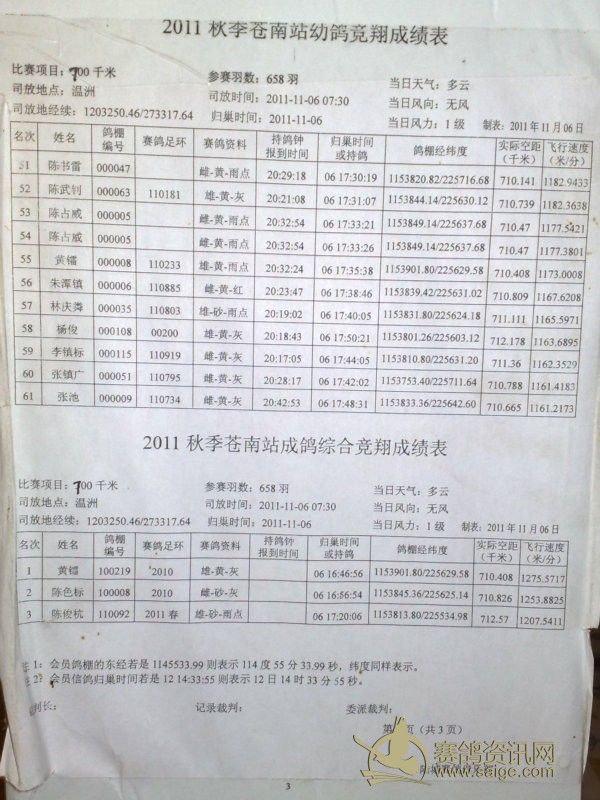 2011 秋季苍南站幼鸽竞翔成绩表
比赛项目：700 千米 参赛羽数：658 羽 当日天气：多云
司放地点：温洲 司放时间：2011-11-06 07:30 当日风向：无风
司放地经续：1203250.46/273317.64 归巢时间：2011-11-06 当日风力：1 级 制表：2011 年 11 月 06 日
名次 姓名 鸽棚编号 赛鸽足环 赛鸽资料 持鸽钟报到时间 归巢时间或持鸽 鸽棚经纬度 实际空距(千米) 飞行速度(米/分)
51 陈书雷 000047 雌-黄-雨点 20:29:18 06 17:30:19 1153820.82/225716.68 710.141 1182.9433
52 陈武钊 000063 110181 雌-黄-灰 20:21:08 06 17:31:07 1153844.14/225630.12 710.739 1182.3638
53 陈占威 000005 雌-黄-雨点 20:32:54 06 17:33:21 1153849.14/225637.68 710.47 1177.5421
54 陈占威 000005 雌-黄-雨点 20:32:54 06 17:33:26 1153849.14/225637.68 710.47 1177.3801
55 黄镭 000008 110233 雄-黄-雨点 20:32:24 06 17:35:38 1153901.80/225629.58 710.408 1173.0008
56 朱潭镇 000006 110885 雌-黄-红 20:23:47 06 17:38:46 1153839.42/225631.02 710.809 1167.6208
57 林庆 000035 110803 雄-砂-雨点 20:19:02 06 17:40:05 1153831.80/225624.18 711.111 1165.5971
58 杨俊 000108 00200 雌-黄-灰 20:18:43 06 17:50:21 1153801.26/225603.12 712.178 1163.6895
59 李镇标 000115 110919 雌-黄-灰 20:17:05 06 17:44:05 1153810.80/225631.20 711.36 1162.3529
60 张镇广 000051 110795 雌-黄-灰 20:28:17 06 17:42:02 1153753.40/225711.64 710.788 1161.4183
61 张池 000009 110734 雌-黄-灰 20:42:53 06 17:48:31 1153833.36/225642.60 710.665 1161.2173
2011 秋季苍南站成鸽综合竞翔成绩表
比赛项目：700 千米 参赛羽数：658 羽 当日天气：多云
司放地点：温洲 司放时间：2011-11-06 07:30 当日风向：无风
司放地经续：1203250.46/273317.64 归巢时间：2011-11-06 当日风力：1 级 制表：2011 年 11 月 06 日
名次 姓名 鸽棚编号 赛鸽足环 赛鸽资料 持鸽钟报到时间 归巢时间或持鸽 鸽棚经纬度 实际空距(千米) 飞行速度(米/分)
1 黄镭 100219 2010 雄-黄-灰 06 16:46:56 1153901.80/225629.58 710.408 1275.5717
2 陈色标 100008 2010 雌-砂-灰 06 16:56:54 1153845.36/225625.14 710.826 1253.8825
3 陈俊杭 110092 2011 春 雄-砂-雨点 06 17:20:06 1153813.80/225534.98 712.57 1207.5411
注 1：会员鸽棚的东经若是 1145533.99 则表示 114 度 55 分 33.99 秒，纬度同样表示。
注 2：会员信鸽归巢时间若是 12 14:33:55 则表示 12 日 14 时 33 分 55 秒。
裁判长： 记录裁判： 委派裁判：
页（共 3 页）
赛鸽资讯网
www.saige.com
3